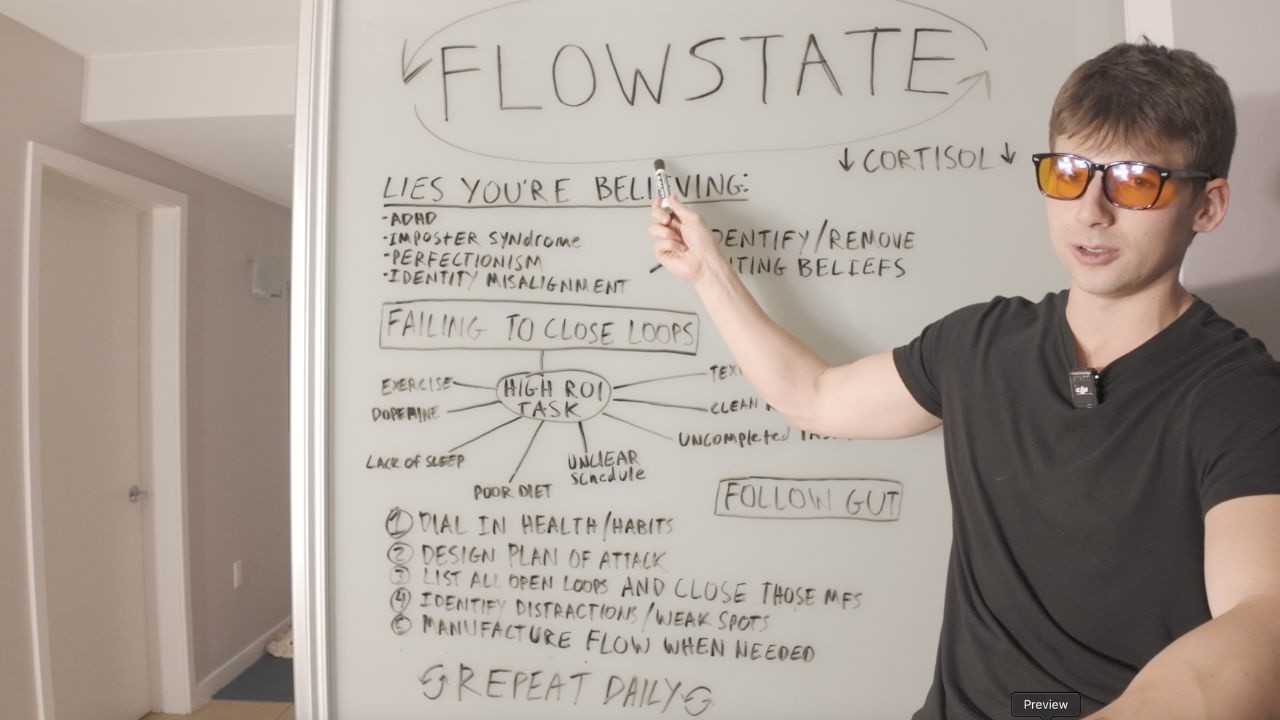 FLOWSTATE
↓ CORTISOL ↓
LIES YOU'RE BELIEVING:
-ADHD
-IMPOSTER SYNDROME
-PERFECTIONISM
-IDENTITY MISALIGNMENT
DENTIFY/REMOVE
ITING BELIEFS
FAILING TO CLOSE LOOPS
HIGH ROI
TASK
EXERCISE
DOPEMINE
LACK OF SLEEP
POOR DIET
UNCLEAR
Schedule
TEX
CLEAN
UNCOMPLETED
FOLLOW GUT
1 DIAL IN HEALTH/HABITS
2 DESIGN PLAN OF ATTACK
3 LIST ALL OPEN LOOPS AND CLOSE THOSE MFS
4 IDENTIFY DISTRACTIONS/WEAK SPOTS
5 MANUFACTURE FLOW WHEN NEEDED
REPEAT DAILY
dji
Preview